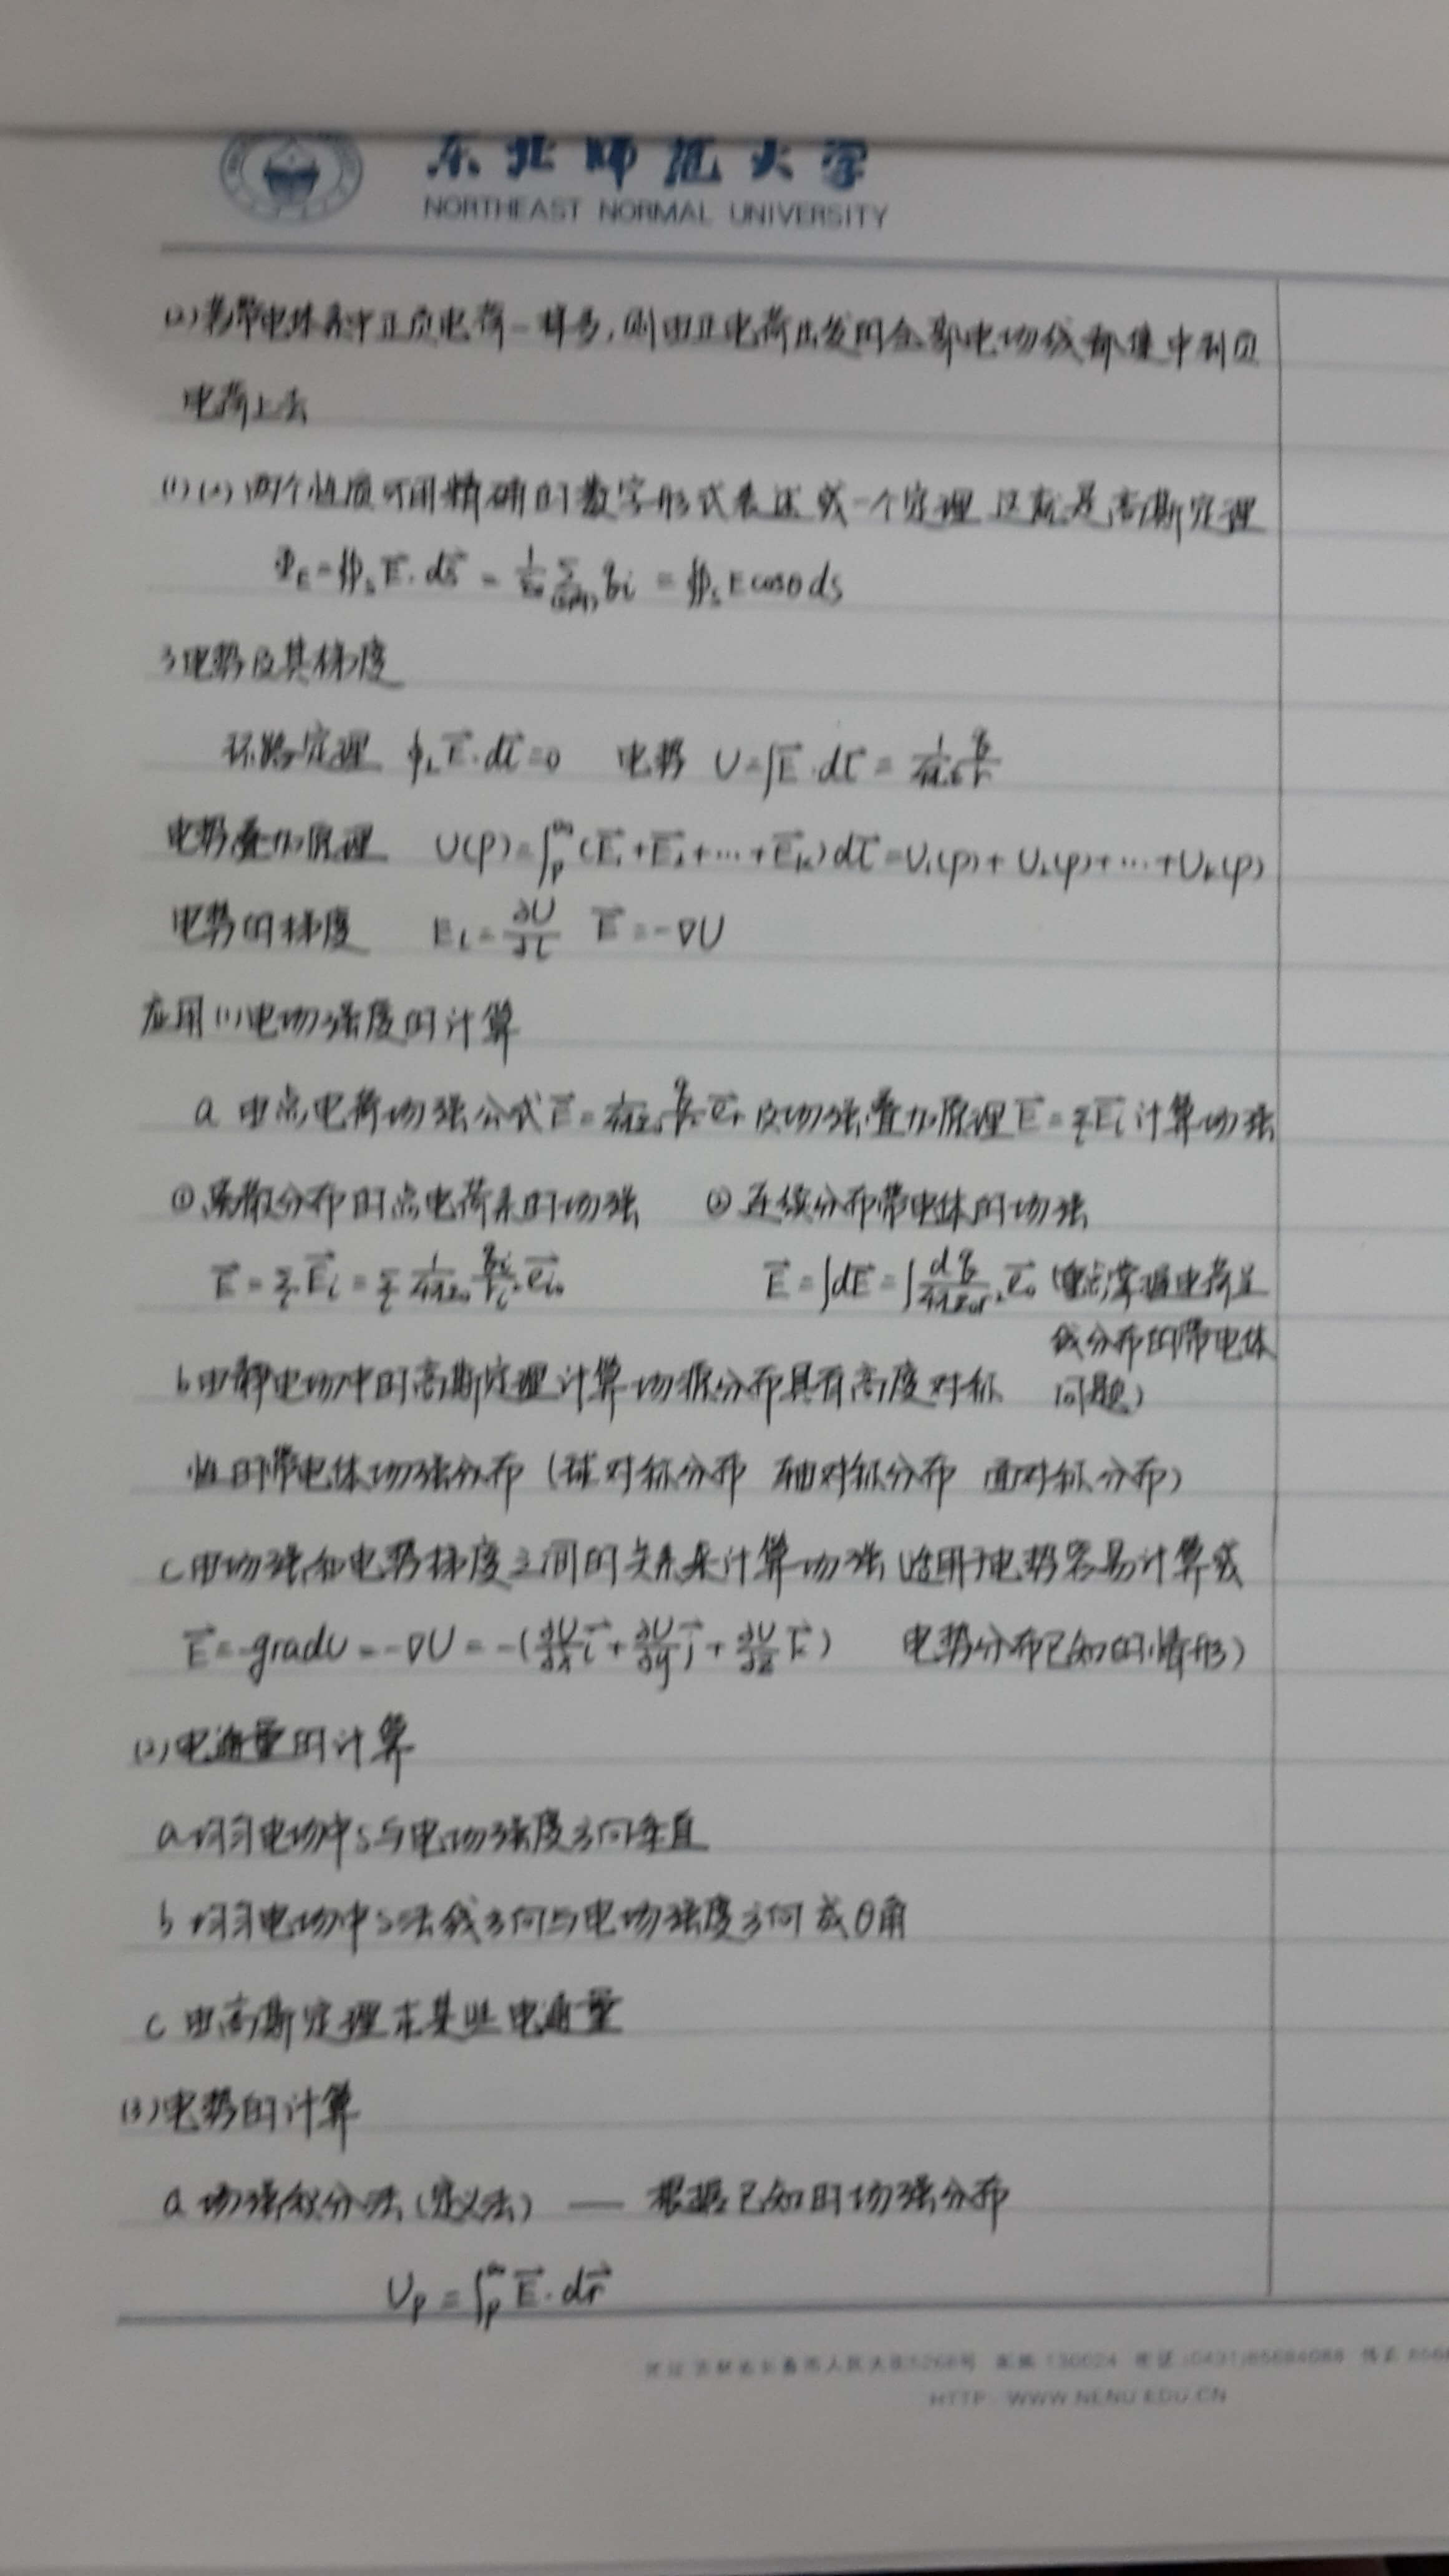 东北师范大学
NORTHEAST NORMAL UNIVERSITY
(2)若带电体系中正负电荷一样多,则由正电荷出发的全部电场线都集中到负
电荷上去
(1)(2)两个性质可用精确的数学形式表述成一个定理 这就是高斯定理
Φ_E=∯_s E⃗·dS⃗ = 1/ε₀ Σ_(S内) qᵢ = ∯_s E cosθ ds
3电势及其梯度
环路定理 ∮_L E⃗·dl⃗=0 电势 U=∫E⃗·dl⃗ = 1/4πε₀ q/r
电势叠加原理 U(P)=∫_P^∞(E⃗₁+E⃗₂+…+E⃗ₖ)dl⃗=U₁(P)+U₂(P)+…+Uₖ(P)
电势的梯度 E_l=∂U/∂l E⃗=-∇U
应用(1)电场强度的计算
a 由点电荷场强公式E⃗=1/4πε₀ q/r² e⃗ᵣ 及场强叠加原理E⃗=ΣᵢE⃗ᵢ计算场强
①离散分布的点电荷系的场强 ②连续分布带电体的场强
E⃗=ΣᵢE⃗ᵢ=Σᵢ 1/4πε₀ qᵢ/rᵢ² e⃗ᵢ₀ E⃗=∫dE⃗=∫dq/4πε₀r² e⃗₀ 电荷呈
线分布的带电体
b由静电场中的高斯定理计算场源分布具有高度对称 问题)
性的带电体场强分布(球对称分布 轴对称分布 面对称分布)
c由场强和电势梯度之间的关系来计算场强 适用于电势容易计算或
E⃗=-gradU=-∇U=-(∂U/∂x i⃗+∂U/∂y j⃗+∂U/∂z k⃗) 电势分布已知的情形)
(2)电通量的计算
a均匀电场中S与电场强度方向垂直
b 均匀电场中S法线方向与电场强度方向成θ角
c 由高斯定理求某些电通量
(3)电势的计算
a 场强积分法(定义法) — 根据已知的场强分布
U_P=∫_P^∞E⃗·dr⃗
HTTP: WWW.NENU.EDU.CN